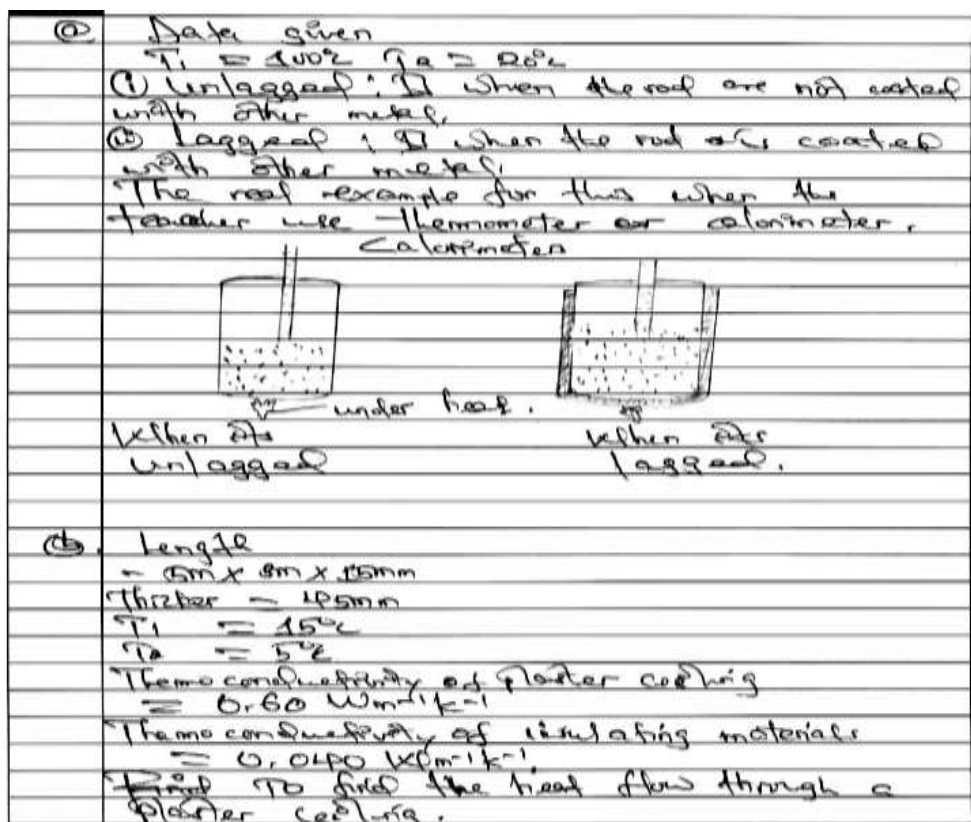 (a) Data given
T1 = 100°c Ta = 20°c
(i) Unlagged: It when the rod are not coated
with other metal.
(ii) Lagged : It when the rod is coated
with other metal.
The real example for this when the
teacher use thermometer or calorimeter.
Calorimeter
under heat.
When its When its
unlagged lagged.
(b). Length
- 5m x 3m x 15mm
Thicker = 45mm
T1 = 15°c
Ta = 5°c
Thermo conductivity of plaster ceeling
= 0.60 Wm-1k-1
Thermo conductivity of insulating materials
= 0.040 Wm-1k-1.
To find the heat flow through a
plaster ceeling.